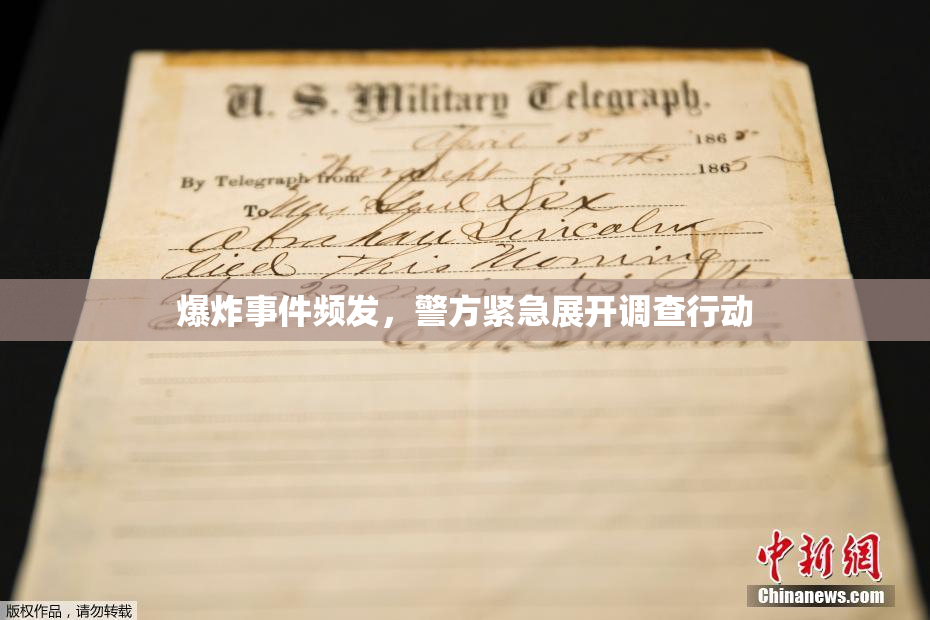 U. S. Military Telegraph.
April 15 1865
By Telegraph from War Dept 15th 1865
To Maj Genl Dix
Abraham Lincoln
died This Morning
at 22 minutes after
爆炸事件频发，警方紧急展开调查行动
E. M. Stanton
中新网
Chinanews.com
版权作品，请勿转载